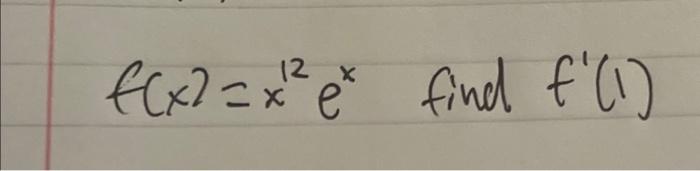 f(x) = x¹² eˣ find f'(1)